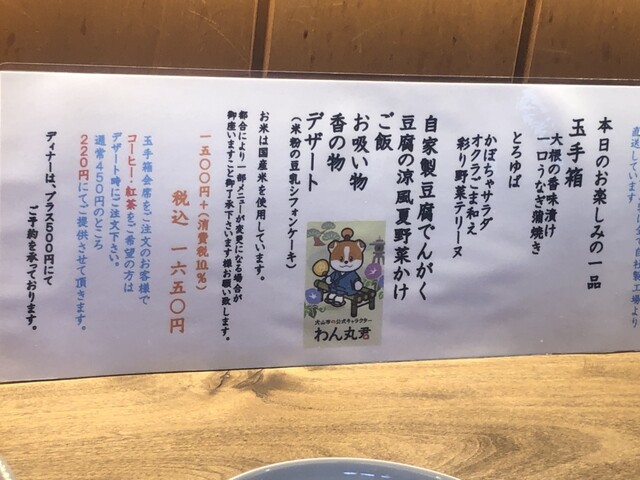 直送しています。
自社製工場より
本日のお楽しみの一品
玉手箱
大根の香味漬け
一口うなぎ蒲焼き
とろゆば
かぼちゃサラダ
オクラごま和え
彩り野菜テリーヌ
自家製豆腐でんがく
豆腐の涼風夏野菜かけ
ご飯
お吸い物
香の物
デザート
(米粉の豆乳シフォンケーキ)
お米は国産米を使用しています。
都合により一部メニューが変更になる場合が
御座いますこと御了承下さいます様お願い致します。
一五〇〇円+(消費税10%)
税込 一六五〇円
玉手箱会席をご注文のお客様で
コーヒー・紅茶をご希望の方は
デザート時にご注文下さい。
通常450円のところ
220円にてご提供させて頂きます。
ディナーは、プラス500円にて
ご予約を承っております。
犬山市の公式キャラクター
わん丸君